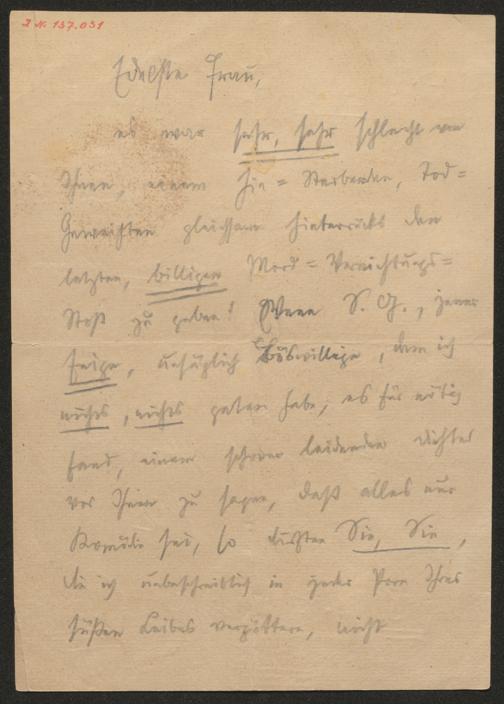 J.N. 137.031
Edelste Frau,
es war sehr, sehr schlecht von
Ihnen, einem Hin=Sterbenden, Tod=
Geweihten gleichsam hinterrücks den
letzten, billigen Mord=Vernichtungs=
Stoß zu geben! Wenn S. G., jener
feige, unsäglich Böswillige, dem ich
nichts, nichts getan habe, es für nötig
fand, einem schwer leidenden Dichter
vor Ihnen zu sagen, daß alles nur
Komödie sei, so durften Sie, Sie,
die ich unbeschreiblich in jeder Pore Ihres
süßen Leibes vergöttere, nicht